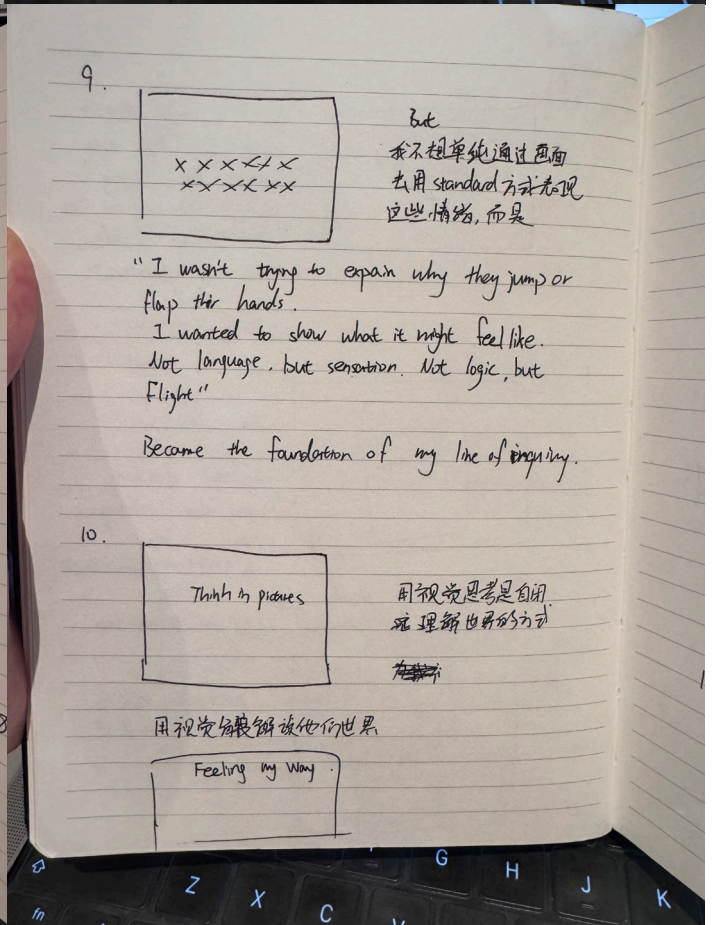 9.
x x x x x x
x x x x x x
But
我不想单纯通过画面
去用 standard 方式表现
这些情绪, 而是
"I wasn't trying to expain why they jump or
flap thir hands.
I wanted to show what it might feel like.
Not language, but sensation. Not logic, but
Flight"
Became the foundation of my line of inquiry.
10.
Think in pictures
用视觉思考是自闭
症理解世界的方式
用视觉解读他们世界
Feeling my way.
G
H
J
K
Z
X
C
V
fn